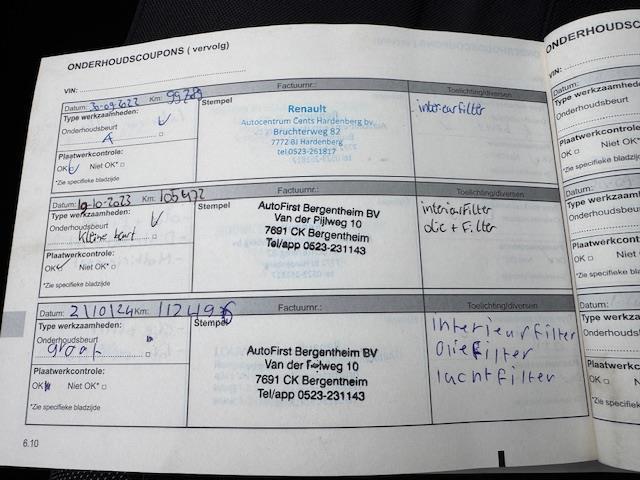 ONDERHOUDSCOUPONS ( vervolg)
VIN:
Datum: 30-09-2022 Km: 99289
Factuurnr.:
Toelichting/diversen
Type werkzaamheden:
Onderhoudsbeurt
A
Plaatwerkcontrole:
OK Niet OK*
*Zie specifieke bladzijde
Stempel
Renault
Autocentrum Cents Hardenberg bv.
Bruchterweg 82
7772 BJ Hardenberg
tel.0523-261817
interieurfilter
Datum: 10-10-2023 Km: 105472
Factuurnr.:
Toelichting/diversen
Type werkzaamheden:
Onderhoudsbeurt
Kleine beurt
Plaatwerkcontrole:
OK Niet OK*
*Zie specifieke bladzijde
Stempel
AutoFirst Bergentheim BV
Van der Pijlweg 10
7691 CK Bergentheim
Tel/app 0523-231143
interieurfilter
olie + Filter
Datum: 2/10/24 Km: 112496
Factuurnr.:
Toelichting/diversen
Type werkzaamheden:
Onderhoudsbeurt
groot
Plaatwerkcontrole:
OK Niet OK*
*Zie specifieke bladzijde
Stempel
AutoFirst Bergentheim BV
Van der Pijlweg 10
7691 CK Bergentheim
Tel/app 0523-231143
interieurfilter
Oliefilter
luchtfilter
6.10
ONDERHOUDSC
VIN:
Datum:
Type werkzaam
Onderhoudsbeurt
Plaatwerkcontro
OK
*Zie specifieke b
Datum:
Type werkzaa
Onderhoudsbeu
Plaatwerkcontr
OK
*Zie specifieke
Datum:
Type werkza
Onderhoudsb
Plaatwerkc
OK
*Zie specifiek